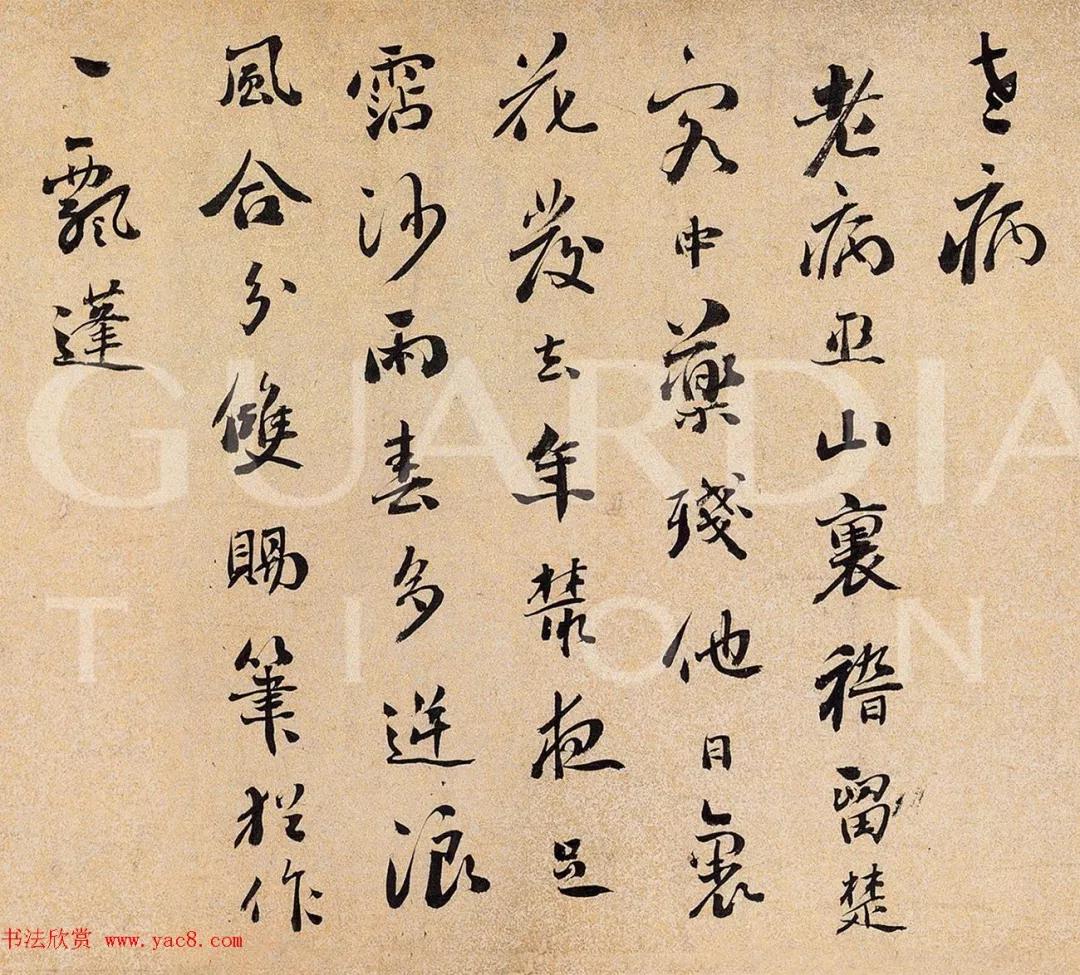 老病
老病巫山裏稽留楚
客中藥殘他日裹
花發去年叢夜足
霑沙雨春多逆浪
風合分雙賜筆猶作
一飄蓬
GUARDIA
TION
书法欣赏 www.yac8.com